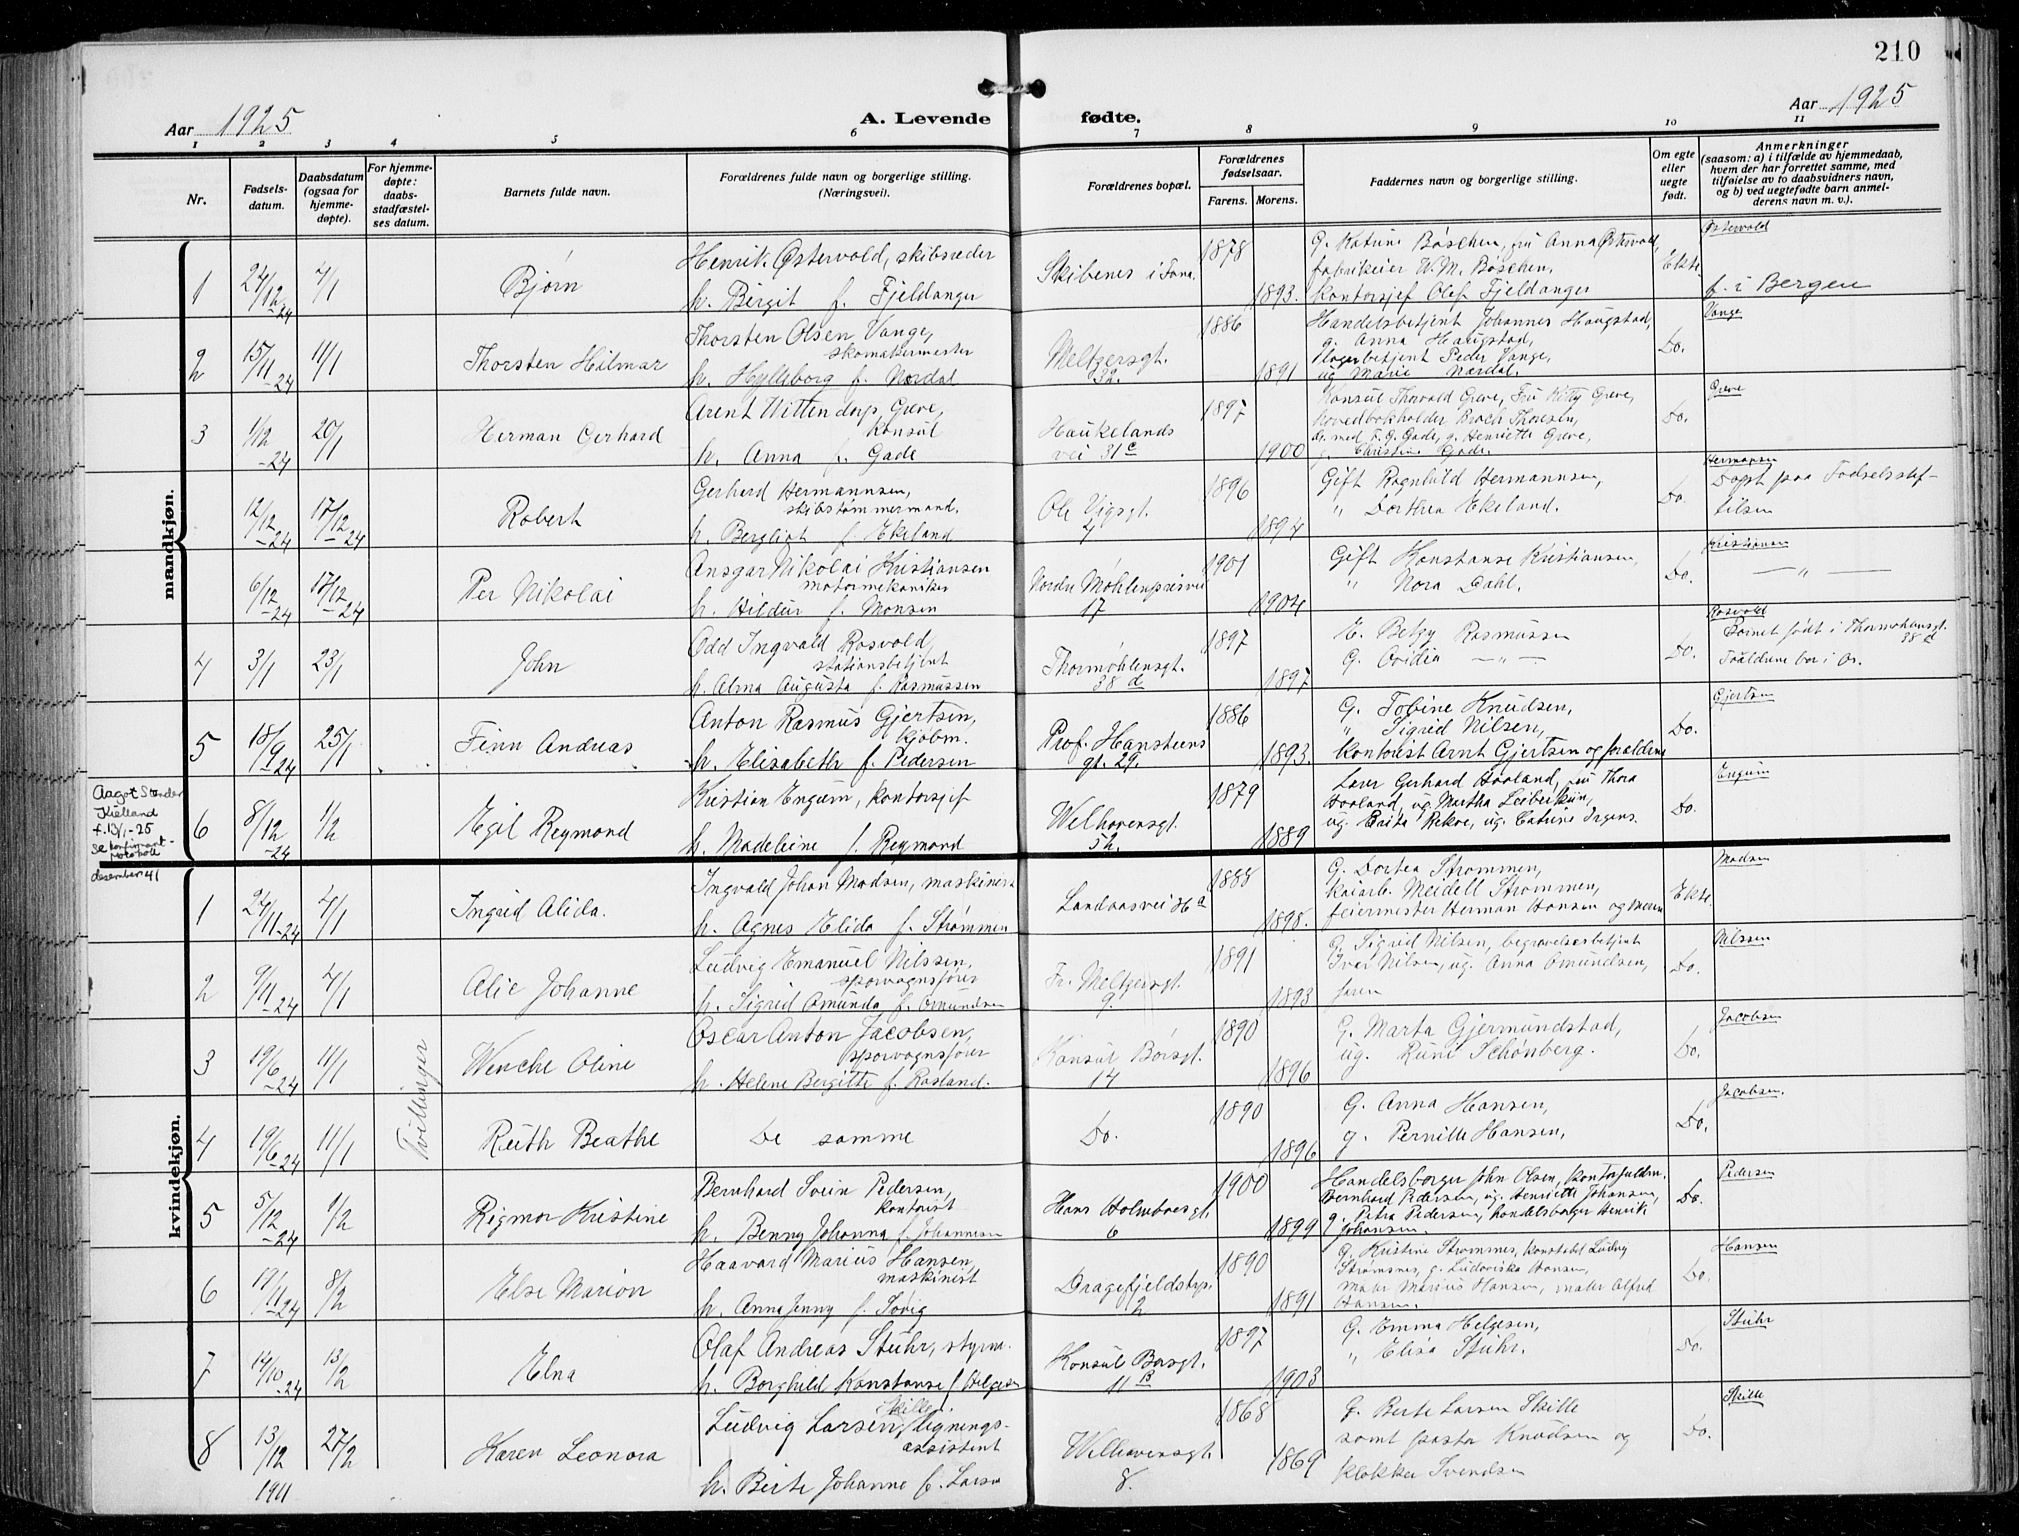 210
Aar 1925
A. Levende fødte.
Aar 1925
1 2 3 4 5 6 7 8 9 10 11
Nr.
Fødsels-
datum.
Daabsdatum
(ogsaa for
hjemme-
døpte).
For hjemme-
døpte:
daabs-
stadfæstel-
ses datum.
Barnets fulde navn.
Forældrenes fulde navn og borgerlige stilling.
(Næringsvei).
Forældrenes bopæl.
Forældrenes
fødselsaar.
Farens. Morens.
Faddernes navn og borgerlige stilling.
Om egte
eller
uegte
født.
Anmerkninger
(saasom: a) i tilfælde av hjemmedaab,
hvem der har forrettet samme, med
tilføielse av to daabsvidners navn,
og b) ved uegtefødte barn anmel-
derens navn m. v.).
mandkjøn.
Østervold
1 24/12-24 4/1 Bjørn Henrik Østervold, skibsreder Skibenes i Fana. 1878 G. Katrine Bøschen, fru Anna Østervold, Ekte
fabrikeier W. M. Bøschen,
h. Birgit f. Fjeldanger 1893. kontorsjef Olaf Fjeldanger f. i Bergen
Vange
2 15/11-24 11/1 Thorsten Hilmar Thorsten Olsen Vange, Meltzersgt. 1886 Handelsbetjent Johannes Haugstad, Do.
skomakermester 32. g. Anna Haugstad,
lagerbetjent Peder Vange,
h. Hylleborg f. Nordal 1891 ug Marie Nordal.
Greve
3 1/12-24 20/1 Herman Gerhard Arent Wittendorp Greve, Haukelands 1897 Konsul Thorvald Greve, Fru Kitty Greve, Do.
Konsul vei 31c hovedbokholder Broch Thoresen,
dr. med F. G. Gade, g. Henriette Greve,
h. Anna f. Gade 1900 g. Christine Gade.
Hermansen
12/12-24 17/12-24 Robert Gerhard Hermannsen, Ole Vigsgt. 1896 Gift Ragnhild Hermannsen, Do Døpt paa Fødselsstif-
skibstømmermand. 4 " Dorthea Ekeland. telsen
h. Bergliot f. Ekeland 1894
Kristiansen
6/12-24 17/12-24 Per Nikolai Ansgar Nikolai Kristiansen Nordre Møhlenprisvei 1901 Gift Konstanse Kristiansen, Do. — " —
motormekaniker 17 " Nora Dahl.
h. Hildur f. Monsen 1904
Rosvold
4 3/1 23/1 John Odd Ingvald Rosvold, Thormøhlensgt. 1897 E. Betzy Rasmussen Do. Barnet født i Thormøhlensgt.
stationsbetjent 38 d G. Ovidia — " — 38 d
h. Alma Augusta f. Rasmussen 1897
Gjertsen
5 18/9-24 25/1 Finn Andreas Anton Rasmus Gjertsen, Prof. Hansteens 1886 G. Tobine Knudsen, Do.
kjøbm. gt. 29. " Sigrid Nilsen,
h. Elisabeth f. Pedersen 1893. kontorist Arnt Gjertsen og forældrene
Aagot Stender
Kielland
f. 13/1-25
se konfirmant-
protokoll
desember 41
Engum
6 8/12-24 1/2 Egil Reymond Kristian Engum, kontorsjef Welhavensgt. 1879 Lærer Gerhard Haaland, fru Thora Do.
52. Haaland,
h. Madeleine f. Reymond 1889
kvindekjøn.
Madsen
1 24/11-24 4/1 Ingrid Alida. Ingvald Johan Madsen, maskinist Landaasvei 1888 G. Dortea Strømmen, Ekte.
kaiarb. Meidell Strømmen,
h. Agnes Elida f. Strømmen 1898. feiermester Herman Hansen og moren
Nilssen
2 9/11-24 4/1 Alie Johanne Ludvig Emanuel Nilssen, Fr. Meltzersgt. 1891 G. Sigrid Nilsen, begravelsesbetjent Do.
sporvognsfører 9. Ivar Nilsen, ug. Anna Omundsen,
h. Sigrid Omunda f. Omundsen 1893 faren
Tvillinger
Jacobsen
3 19/6-24 11/1 Wenche Oline Oscar Anton Jacobsen, Konsul Børsgt. 1890 G. Marta Gjermundstad, Do.
sporvognsfører 14 ug. Runi Schønberg.
h. Helene Bergitte f. Rosland. 1896
Jacobsen.
4 19/6-24 11/1 Ruth Beathe De samme Do. 1890 G. Anna Hansen, Do.
1896 g. Pernille Hansen,
Pedersen
5 5/12-24 1/2 Rigmor Kristine Bernhard Svein Pedersen, Hans Holmboesgt. 1900 Handelsborger John Olsen, kontorfuldm. Do.
kontorist 6 Bernhard Pedersen, ug. Henriette Johansen,
h. Benny Johanna f. Johannesen 1899 g. Petra Pedersen, handelsborger Henrik
Johansen.
Hansen
6 19/11-24 8/2 Else Marion Haavard Marius Hansen, Dragefjeldstrp. 1890 G. Kristine Strømsnes, konstabel Ludvig Do.
maskinist 2 Strømsnes, g. Ludoviska Hansen,
maler Marius Hansen, maler Alfred
h. Anna Jenny f. Søvig 1891 Hansen.
Stuhr
7 14/10-24 13/2 Elna Olaf Andreas Stuhr, styrm. Konsul Børsgt. 1897 G. Emma Helgesen, Do.
11 B " Elisa Stuhr.
h. Borghild Konstanse f. Helgesen 1903
Skille
8 13/12 1911 27/2 Karen Leonora Ludvig Larsen Skille, lignings- Welhavensgt. 1868 G. Berte Larsen Skille Do.
assistent 8. samt pastor Knudsen og
h. Berte Johanne f. Larsen 1869 klokker Svendsen